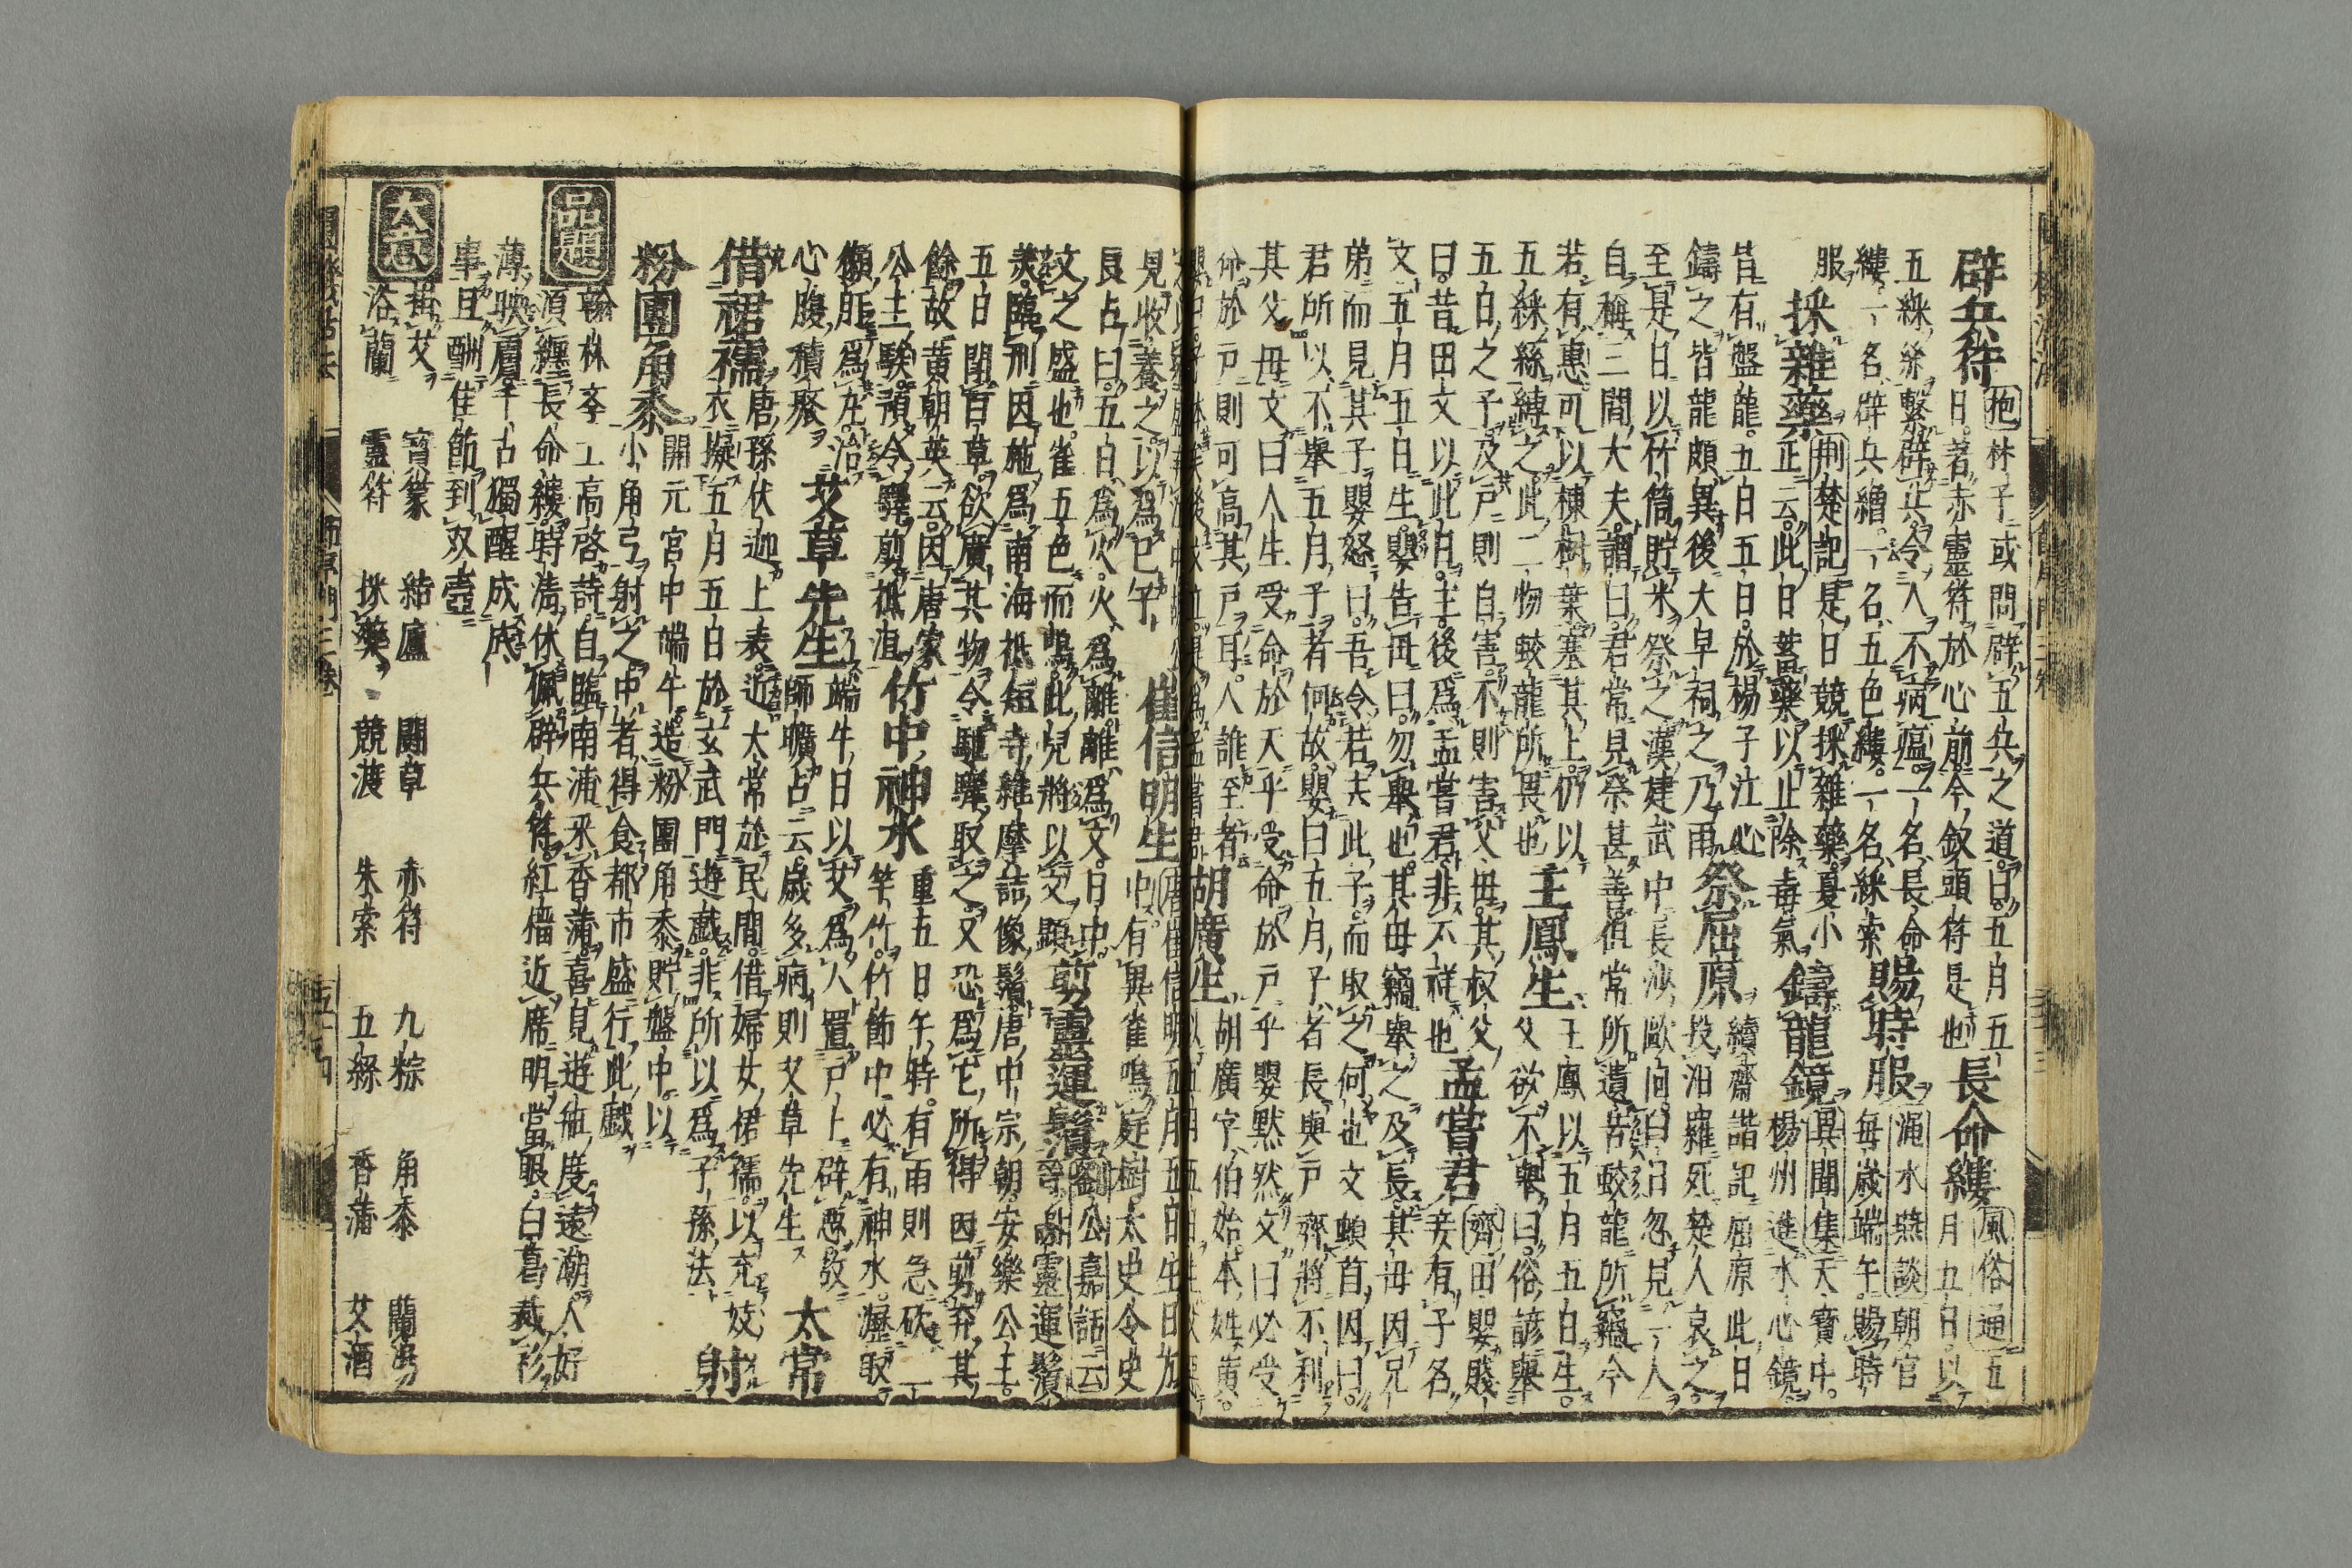 辟兵符
抱朴子或問辟五兵之道曰五月五
日著赤靈符於心前今釵頭符是也
長命縷
風俗通五
月五日以
五綵絲繫辟兵令人不病瘟一名長命
縷一名辟兵繒一名五色縷一名綵索
賜時服
澠水燕談朝官
每歳端午賜時
服
採雜藥
荆楚記是日競採雜藥夏小
正云此日蓄藥以止除毒氣
鑄龍鏡
異聞集天寶中
楊州進水心鏡
皆有盤龍五日五日於楊子江心
鑄之皆龍頗異後大旱祠之乃雨
祭屈原
續齋諧記屈原此日
投汨羅死楚人哀之
至是日以竹筒貯米祭之漢建武中長沙歐回白日忽見一人
自稱三閭大夫謂曰君常見祭甚善但常所遺苦蛟龍所竊今
若有惠可以楝樹葉塞其上仍以
五綵絲縛之此二物蛟龍所畏也
王鳳生
王鳳以五月五日生
父欲不舉曰俗諺舉
五日之子及戸則自害不則害父母其叔父
曰昔田文以此日生後爲孟嘗君非不祥也
孟嘗君
齊田嬰賤
妾有子名
文五月五日生嬰告母曰勿舉也其母竊舉之及長其母因兄
弟而見其子嬰怒曰吾令若去此子而取之何也文頓首因曰
君所以不舉五月子者何故嬰曰五月子者長與戸齊將不利
其父母文曰人生受命於天乎受命於戸乎嬰默然文曰必受
命於戸則可高其戸耳人誰至者
胡廣生
胡廣字伯始本姓黄
以五月五日生父惡
見收養之以爲已
崔信明生
唐崔信明五月五日生日方
中有異雀鳴庭樹太史令史
良占曰五日爲火火爲離離爲文日中
文之盛也雀五色而鳴此兒將以文顯
剪靈運鬚
劉公嘉話云
謝靈運鬚
美臨刑因施爲南海祗垣寺維摩詰像鬚唐中宗朝安樂公主
五日鬪百草欲廣其物令馳驛取之又恐爲它所得因剪弃其
餘故黄朝英云因唐家
公主騃預令驛剪祗洹
竹中神水
重五日午時有雨則急砍一
竿竹竹節中必有神水瀝取
獺肝爲丸治
心腹積聚
艾草先生
端午日以艾爲人置戸上辟惡故
師曠占云歳多病則艾草先生
太常
借裙襦
唐孫伏迦上表近太常於民間借婦女裙襦以充妓
衣擬五月五日於玄武門遊戯非所以爲子孫法
射
粉團角黍
開元宮中端午造粉團角黍貯盤中以
小角弓射之中者得食都市盛行此戯
品題
翰林李工高啓詩自臨南浦采香蒲喜見遊船度遠潮人好
須纏長命縷時清休佩辟兵符紅榴近席明當眼白葛裁衫
薄映膚千古獨醒成底
事且酬佳節到双壺
大意
插艾 寳篆 結廬 鬪草 赤符 九粽 角黍 蘭湯
浴蘭 靈符 採藥 競渡 朱索 五綵 香蒲 艾酒